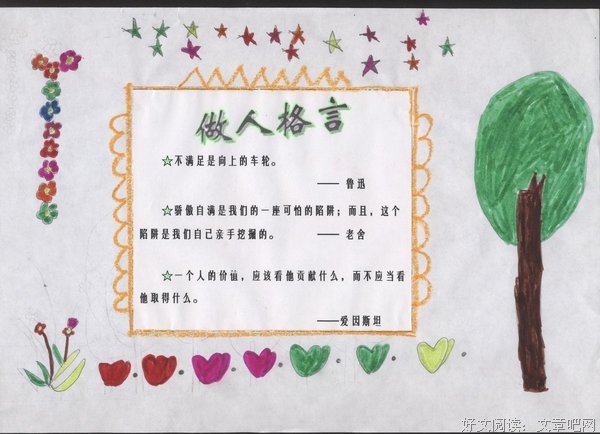 做人格言
☆不满足是向上的车轮。
—— 鲁迅
☆骄傲自满是我们的一座可怕的陷阱；而且，这个
陷阱是我们自己亲手挖掘的。 —— 老舍
☆一个人的价值，应该看他贡献什么，而不应当看
他取得什么。
——爱因斯坦
好文阅读：文章吧网